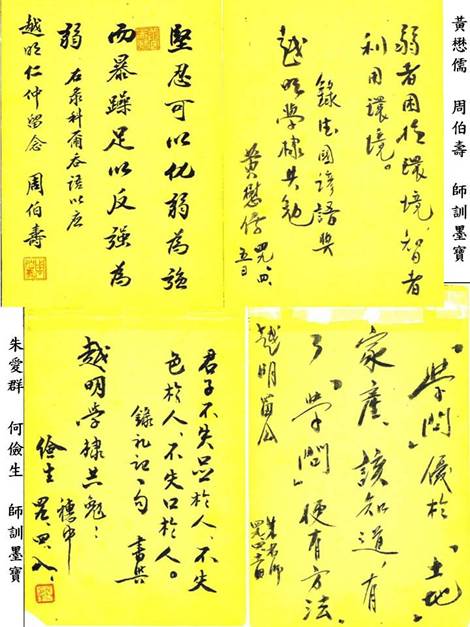 黃懋儒 周伯壽 師訓墨寶
弱者困於環境，智者
利用環境。
錄德國諺語與
越明學棣共勉
黃懋儒 四九、四、
五日
堅忍可以化弱為強
而暴躁足以反強為
弱
右彔科爾吞語以应
越明仁仲留念 周伯壽
「學問」優於「土地」
家產，該知道，有
了「學問」便有方法。
越明留念
君子不失足於人，不失
色於人，不失口於人。
錄礼記一句 書與
越明學棣共勉：
儉生
朱愛群 何儉生 師訓墨寶